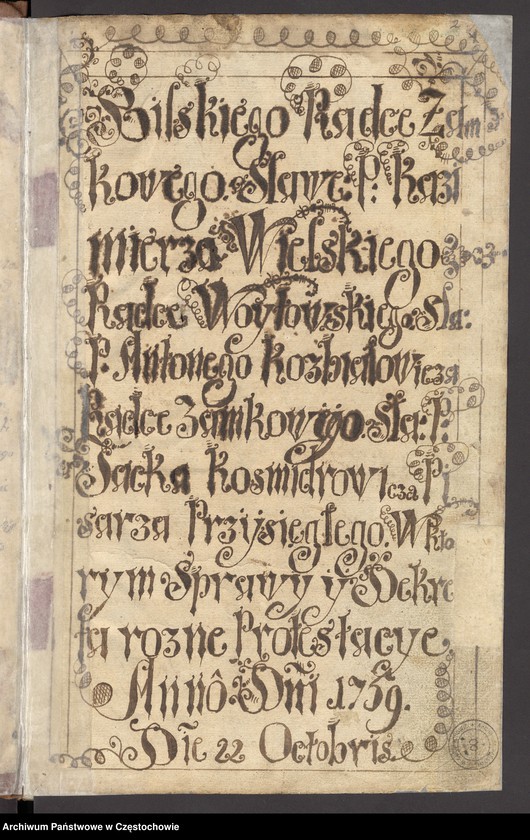 Bilskiego Radce Zam
kowego. Sławe: P: Kazi
mierza Wielskiego
Radce Woytowskiego. Sła:
P: Antonego Kozbiałowicza
Radce Zamkowego. Sła: P:
Jacka Kosmidrowicza Pi
sarza Przysięgłego. W kto
rym Sprawy y Dekre
ta rozne Protestacye
Annô Dni 1759.
Die 22 Octobris.
Archiwum Państwowe w Częstochowie